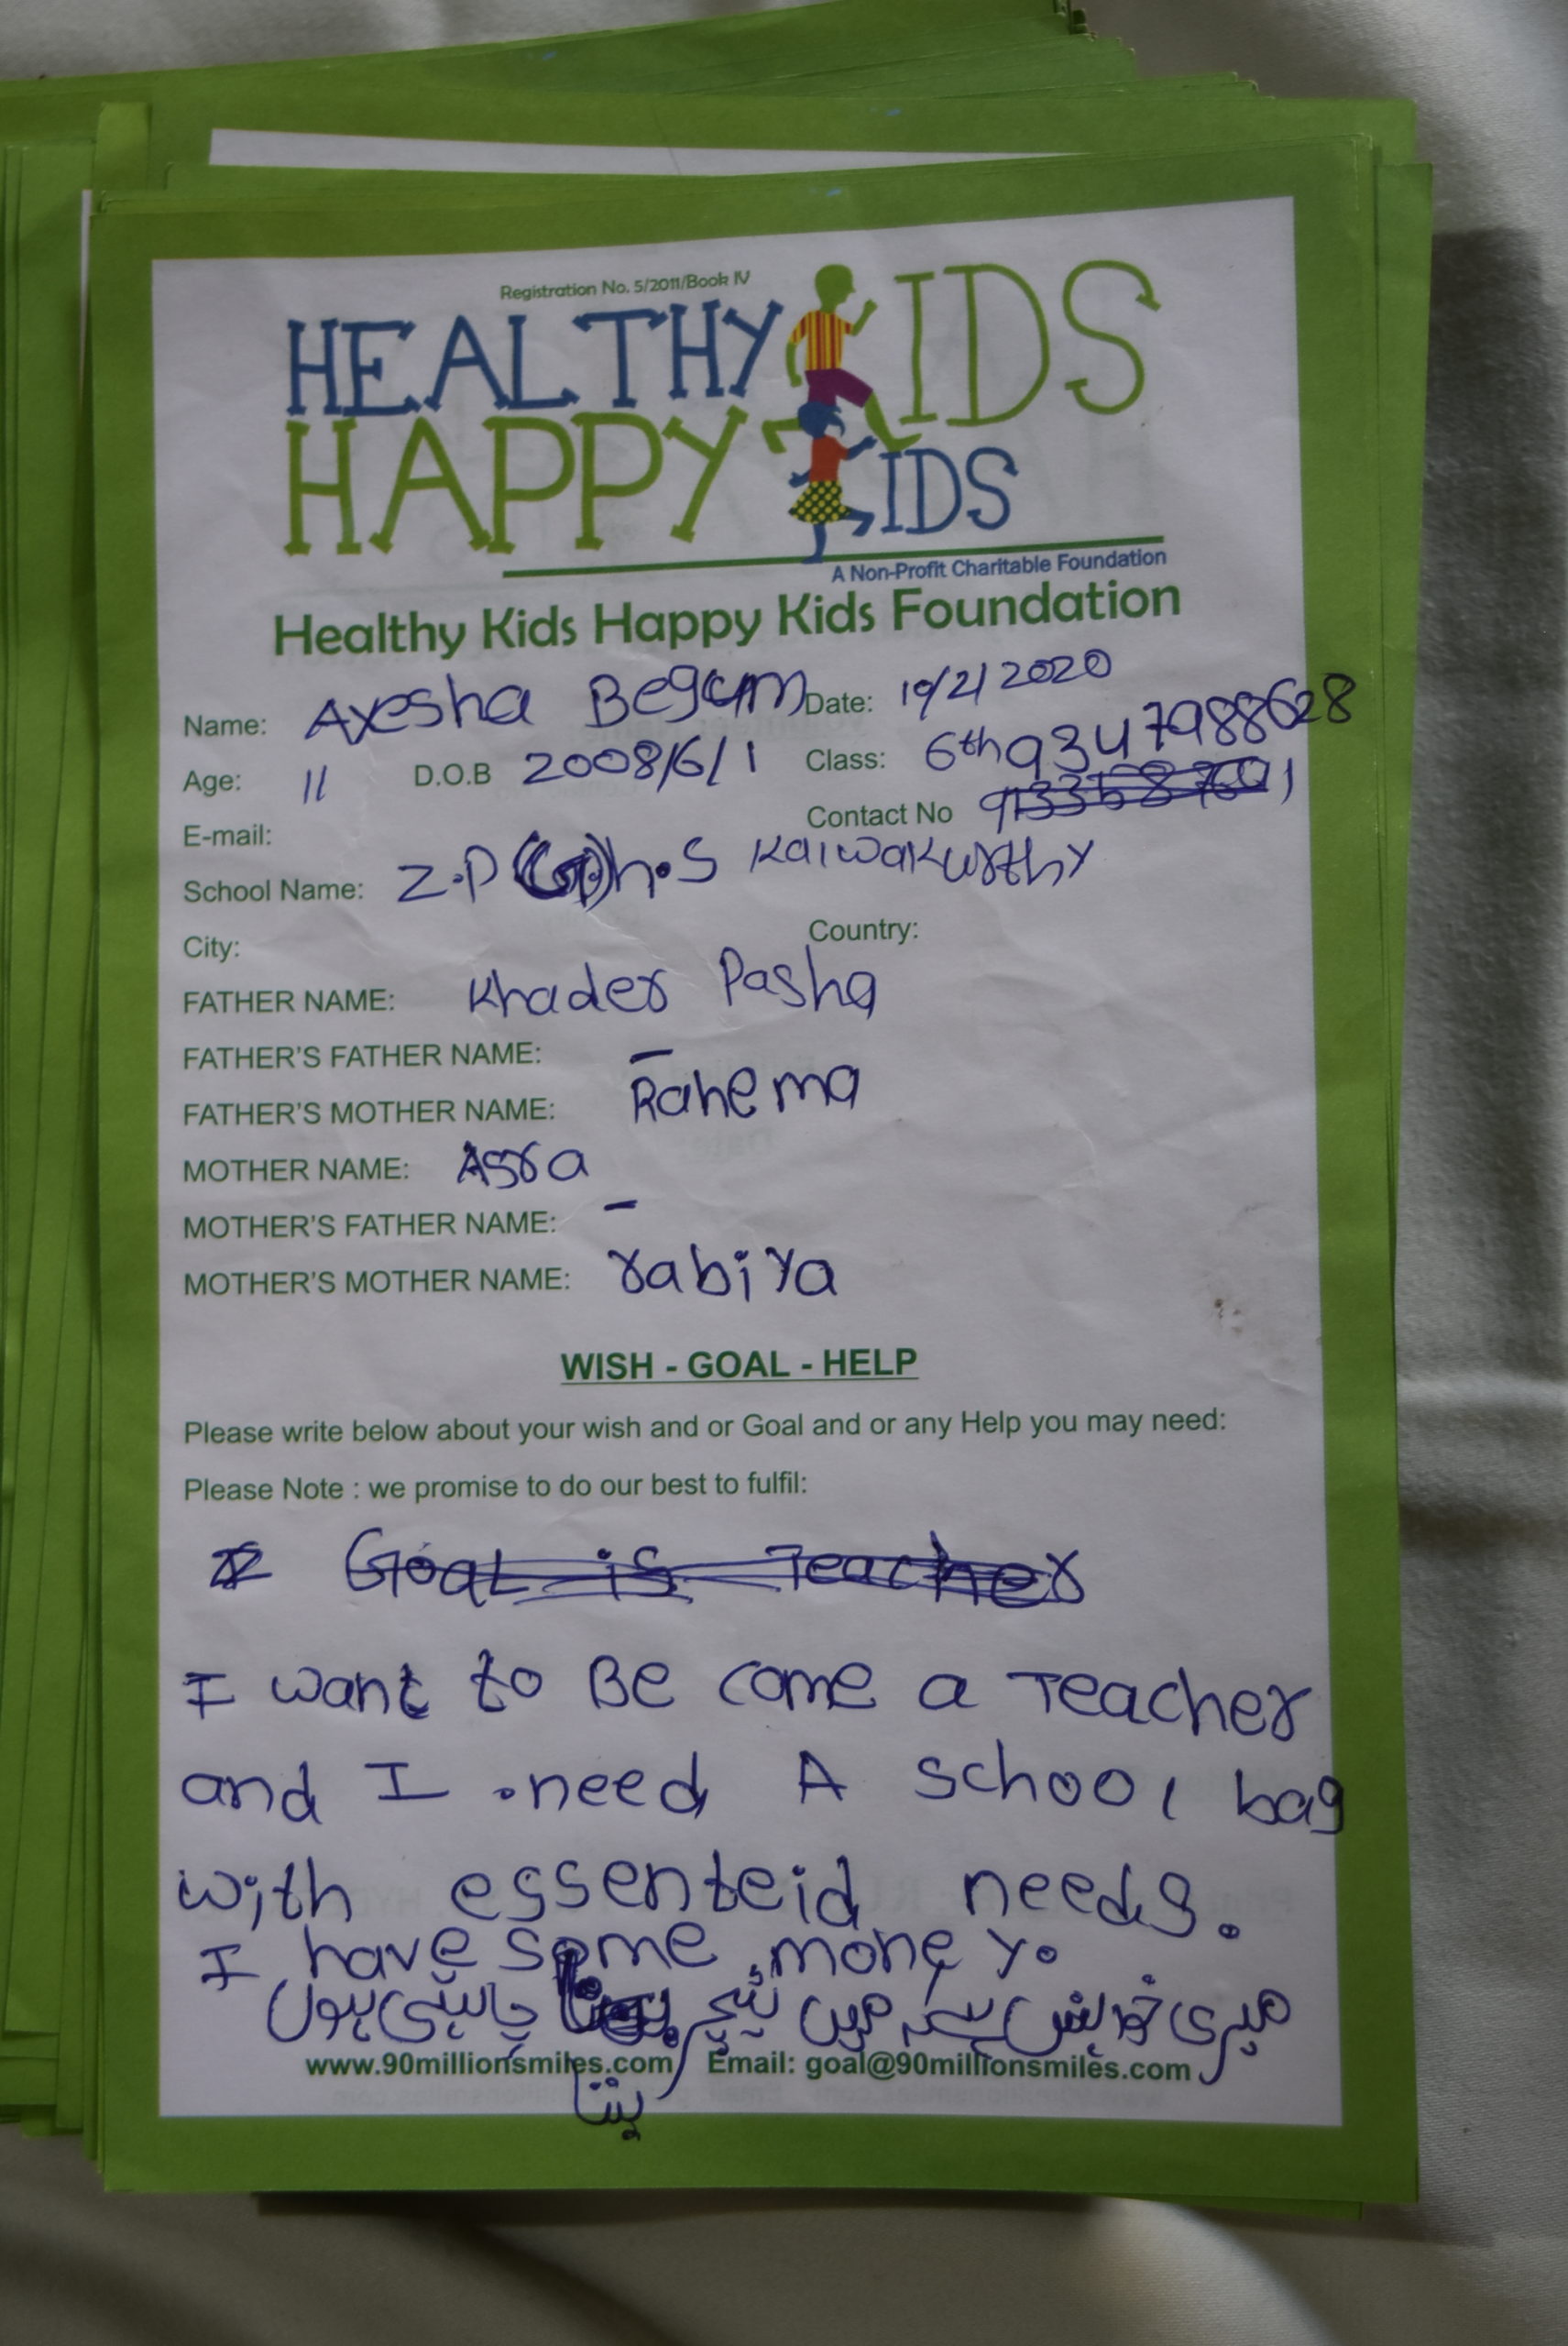 Registration No. 5/2011/Book IV
HEALTHY KIDS
HAPPY KIDS
A Non-Profit Charitable Foundation
Healthy Kids Happy Kids Foundation
Name: Ayesha Begum Date: 19/2/2020
Age: 11 D.O.B 2008/6/1 Class: 6th 9347988628
E-mail: Contact No
School Name: Z.P (G).h.S Kalwakurthy
City: Country:
FATHER NAME: Khader Pasha
FATHER'S FATHER NAME: -
FATHER'S MOTHER NAME: Rahema
MOTHER NAME: Asra
MOTHER'S FATHER NAME: -
MOTHER'S MOTHER NAME: rabiya
WISH - GOAL - HELP
Please write below about your wish and or Goal and or any Help you may need:
Please Note : we promise to do our best to fulfil:
Goal is Teacher
I want to Be come a Teacher
and I need A school bag
with essenteid needs.
I have some money.
میری خواہش ہے کہ میں ٹیچر چاہتی ہوں
بننا
www.90millionsmiles.com Email: goal@90millionsmiles.com